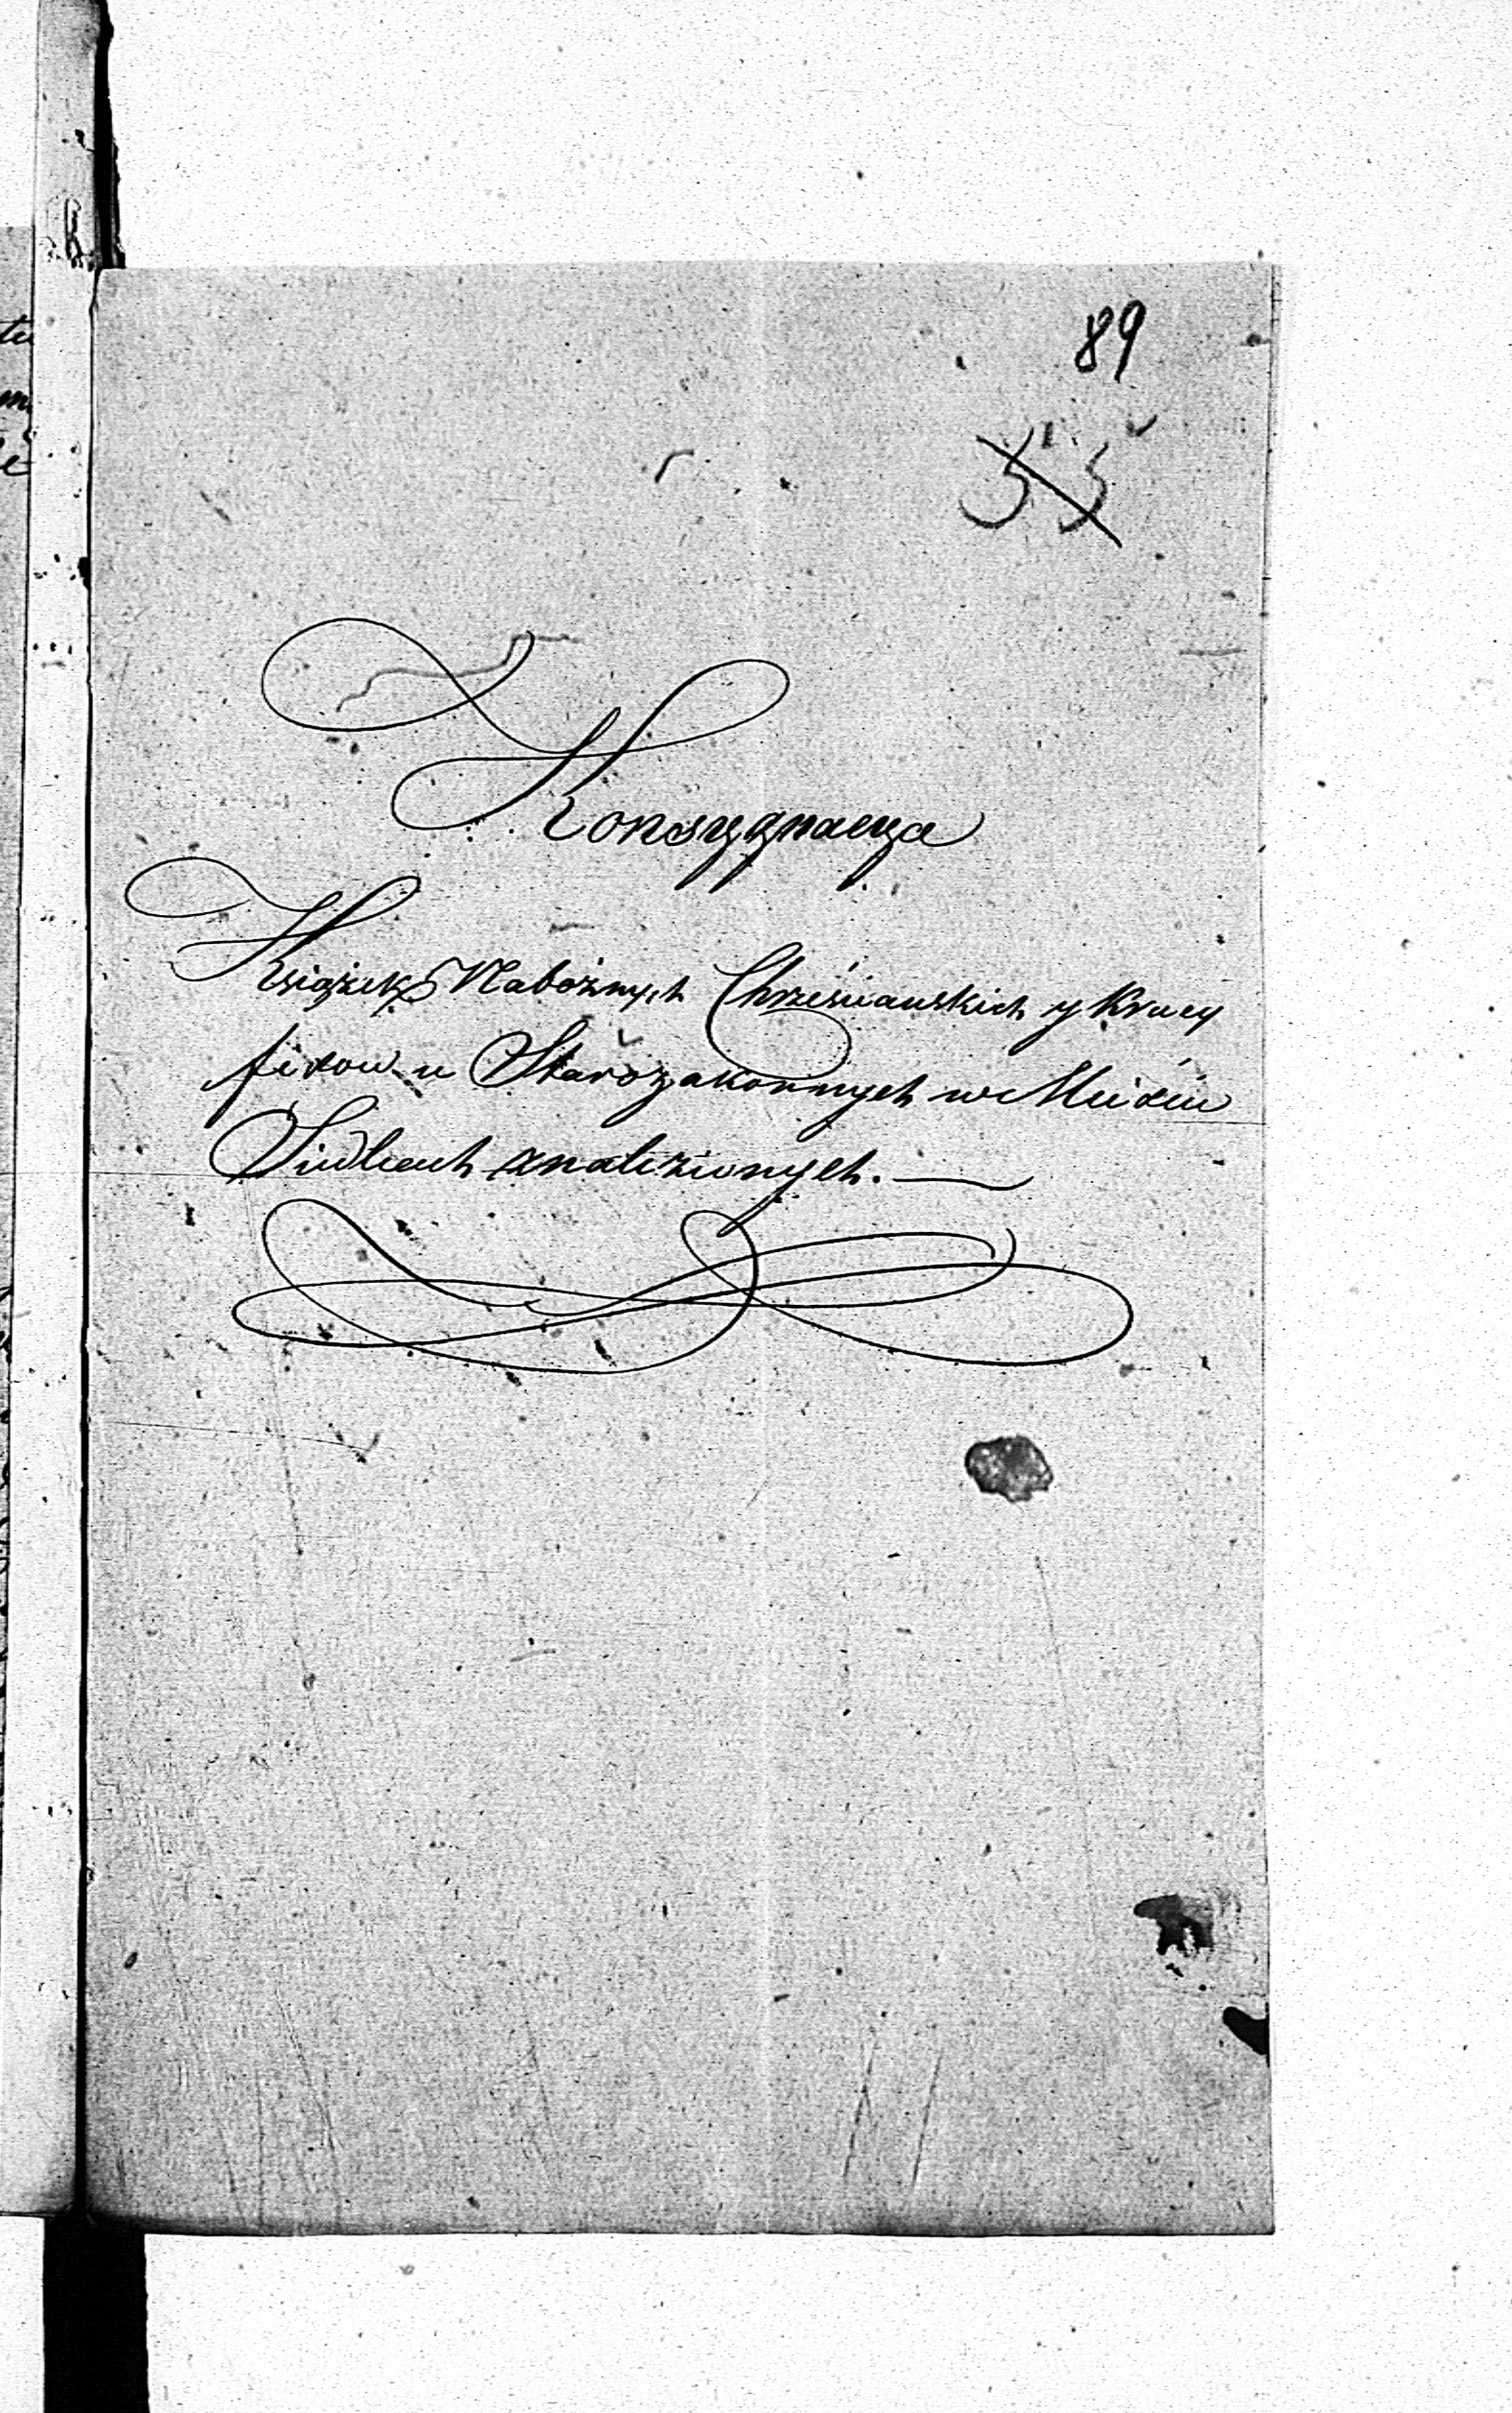 89
55
Konsygnacya
Książek Nabożnych Chrześcianskich y Krucy
fixow u Starozakonnych w Mieście
Siedlcach znalezionych.